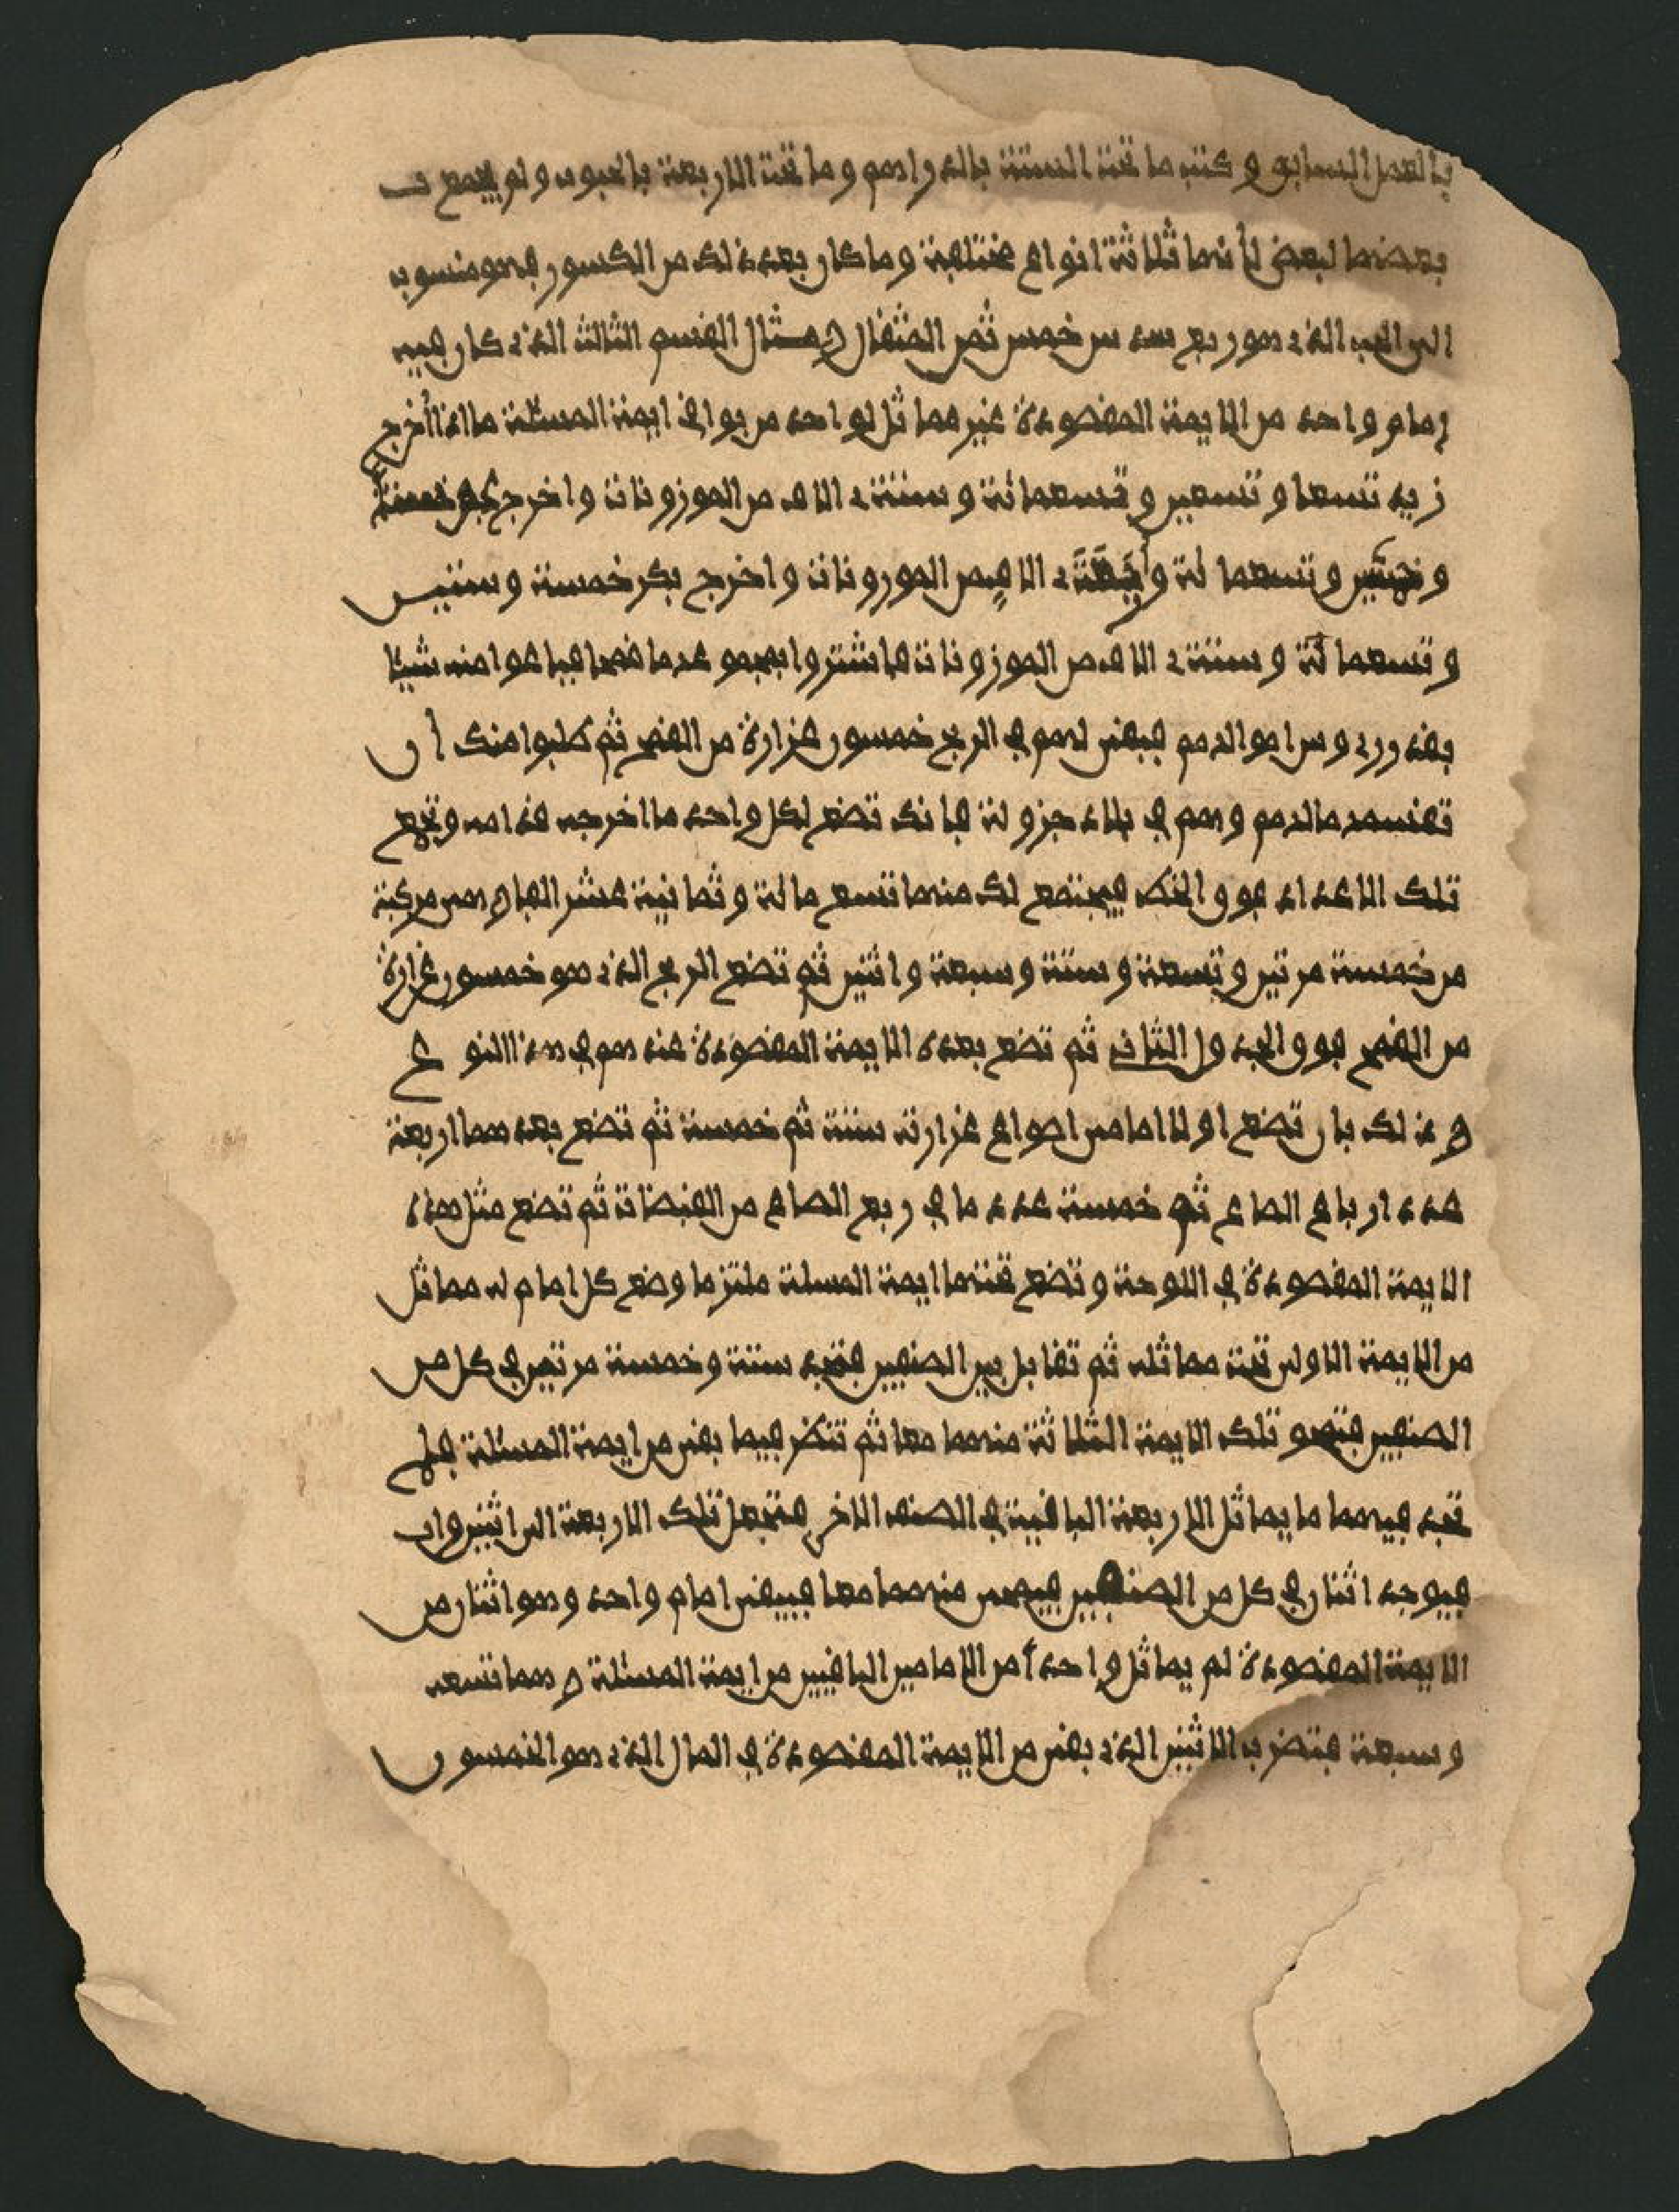 بالعمل السابق وكتب ما تحت الستة بالدراهم وما تحت الاربعة بالحبوب ولم يجمع
بعضها لبعض لأنها ثلاثة انواع مختلفة وما كان بعد ذلك من الكسور فهو منسوب
الى الحب الذي هو ربع سدس خمس ثمن المثقال ومثال القسم الثالث الذي كان فيه
إمام واحد من الايمة المقصودة غير مماثل لواحد من بواقي ايمة المسئلة ما اذا أخرج
زيد تسعا وتسعين وتسعمائة وستة ءالاف من الموزونات واخرج
وتسعمائة و ءالاف من الموزونات واخرج بكر خمسة وستين
وتسعمائة وستة ءالاف من الموزونات فاشتروا بمجموعه ما قمحا فباعوا منه شيئا
بقدر رءوس اموالهم فبقى لهم في الربح خمسون غرارة من القمح ثم طلبوا منك أن
تقسمه مالهم وهم في بلاد جزولة فانك تضع لكل واحد ما اخرجه قدامه وتجمع
تلك الاعداد فوق الخط فيجتمع لك منها تسع مائة وثمانية عشر الفا وهي مركبة
من خمسة مرتين وتسعة وستة وسبعة واثنين ثم تضع الربح الذي هو خمسون غرارة
من القمح فوق الجدول الثاني ثم تضع بعده الايمة المقصودة عندهم في هذا النوع
وذلك بان تضع اولا امامي اصواع غرارته ستة ثم خمسة ثم تضع بعدهما اربعة
عدد ارباع الصاع ثم خمسة عدد ما في ربع الصاع من القبضات ثم تضع مثل هذه
الايمة المقصودة في اللوحة وتضع تحتها ايمة المسلة ملتزما وضع كل امام له مماثل
من الايمة الاولى تحت مماثله ثم تقابل بين الصفين فتجد ستة وخمسة مرتين في كل من
الصفين فتمحو تلك الايمة الثلاثة منهما معا ثم تنظر فيما بقى من ايمة المسئلة فلم
تجد فيهما ما يماثل الاربعة الباقية في الصف الاخر فتجعل تلك الاربعة الى اثنين واب
فيوجد اثنان في كل من الصفين فيمحى منهما معا فيبقى امام واحد وهو اثنان من
الايمة المقصودة لم يماثل واحدا من الامامين الباقيين من ايمة المسئلة وهما تسعه
وسبعة فتضرب الاثنين الذي بقى من الايمة المقصودة في المال الذي هو الخمسون